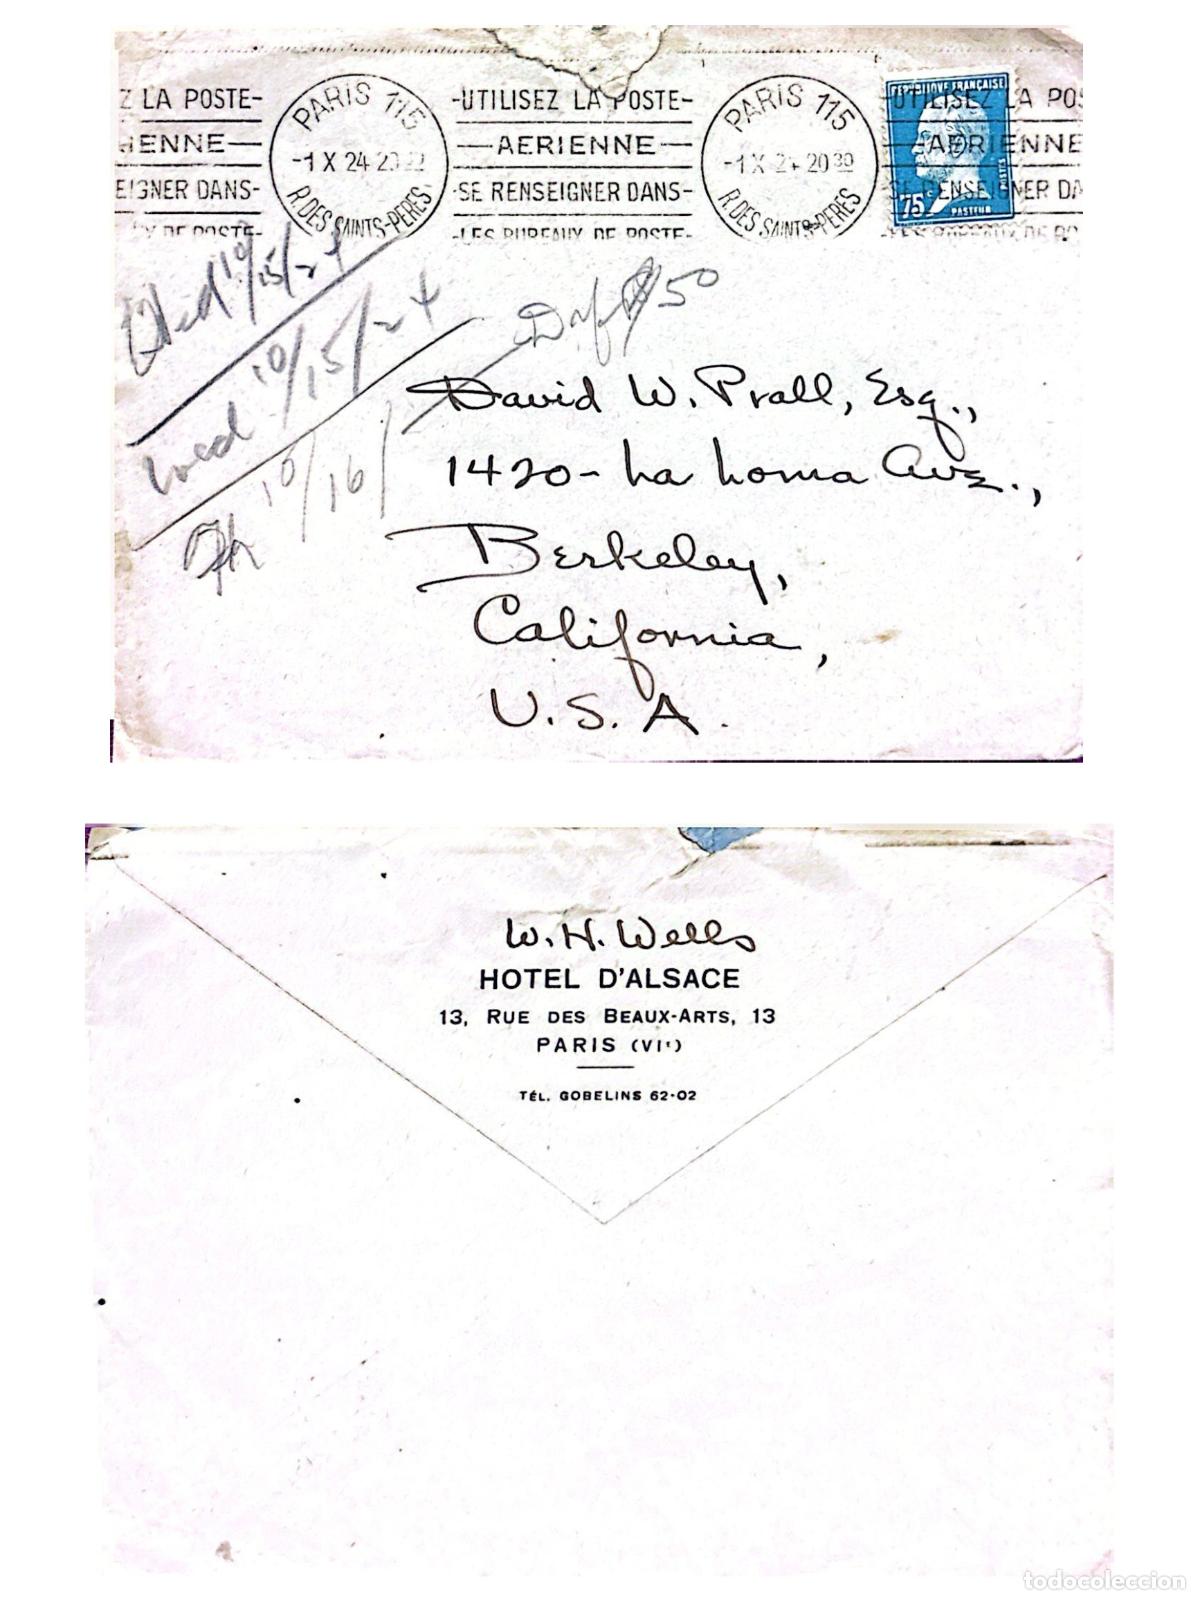 Z LA POSTE-
IENNE
EIGNER DANS-
X DE POSTE-
PARIS 115
-1 X 24 20
R. DES SAINTS-PERES
-UTILISEZ LA POSTE-
-AERIENNE-
-SE RENSEIGNER DANS-
-LES BUREAUX DE POSTE-
PARIS 115
-1 X 24 20 30
R. DES SAINTS-PERES
UTILISEZ LA POS
-AERIENNE
SE RENSEIGNER DA
REPUBLIQUE FRANÇAISE
POSTES
75c
PASTEUR
10/15/24
10/15/24
$50
10/16/
David W. Prall, Esq.,
1420 - La Loma Ave.,
Berkeley,
California,
U. S. A.
W. H. Wells
HOTEL D'ALSACE
13, RUE DES BEAUX-ARTS, 13
PARIS (VIe)
TÉL. GOBELINS 62-02
todocoleccion